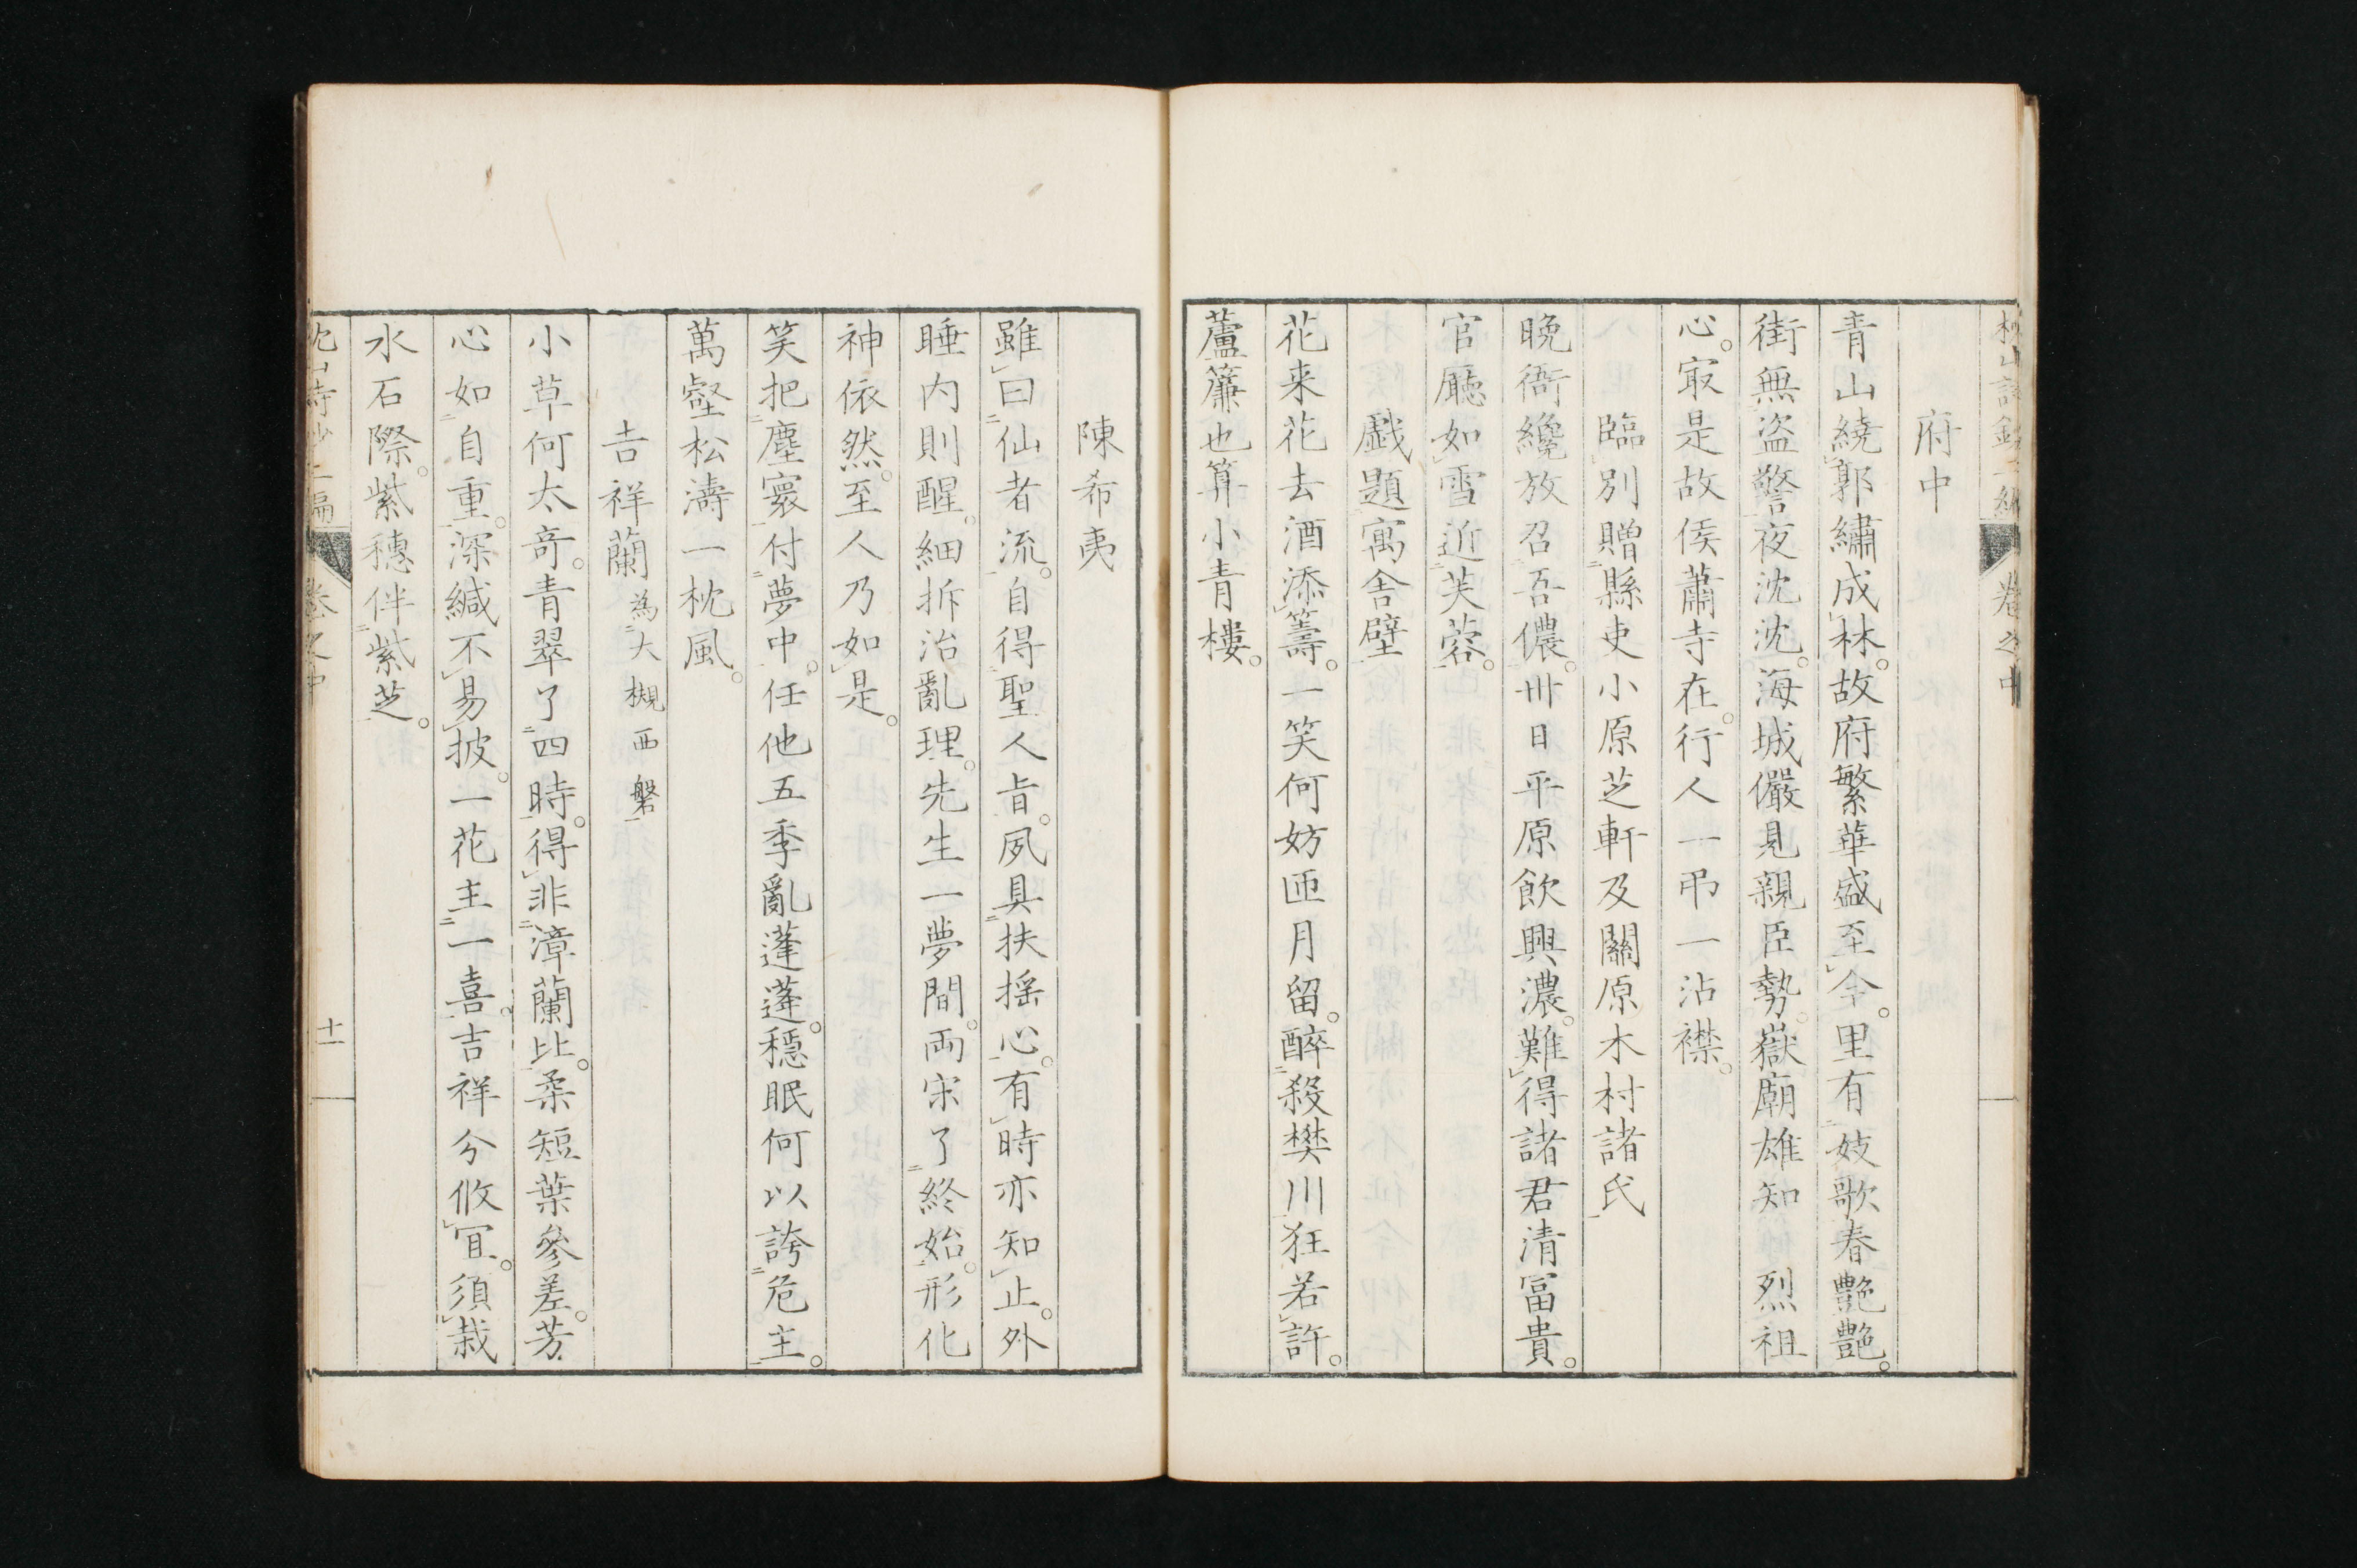 府中
青山繞郭繡成林。故府繁華盛至今。里有妓歌春艶艶。
街無盗警夜沈沈。海城儼見親臣勢。嶽廟雄知烈祖
心。㝡是故侯蕭寺在。行人一弔一沾襟。
臨別贈縣吏小原芝軒及關原木村諸氏
晩衙纔放召吾儂。卅日平原飲興濃。難得諸君清冨貴。
官廳如雪近芙蓉。
戯題寓舎壁
花来花去酒添籌。一笑何妨匝月留。醉殺樊川狂若許。
蘆簾也算小青樓。
陳希夷
雖曰仙者流。自得聖人旨。夙具扶揺心。有時亦知止。外
睡内則醒。細拆治亂理。先生一夢間。両宋了終始。形化
神依然。至人乃如是。
笑把塵寰付夢中。任他五季亂蓬蓬。穏眠何以誇危主。
萬壑松濤一枕風。
吉祥蘭為大槻西磐
小草何太奇。青翠了四時。得非漳蘭比。柔短葉參差。芳
心如自重。深緘不易披。一花主一喜。吉祥兮攸冝。須栽
水石際。紫穂伴紫芝。
卷之中
十一